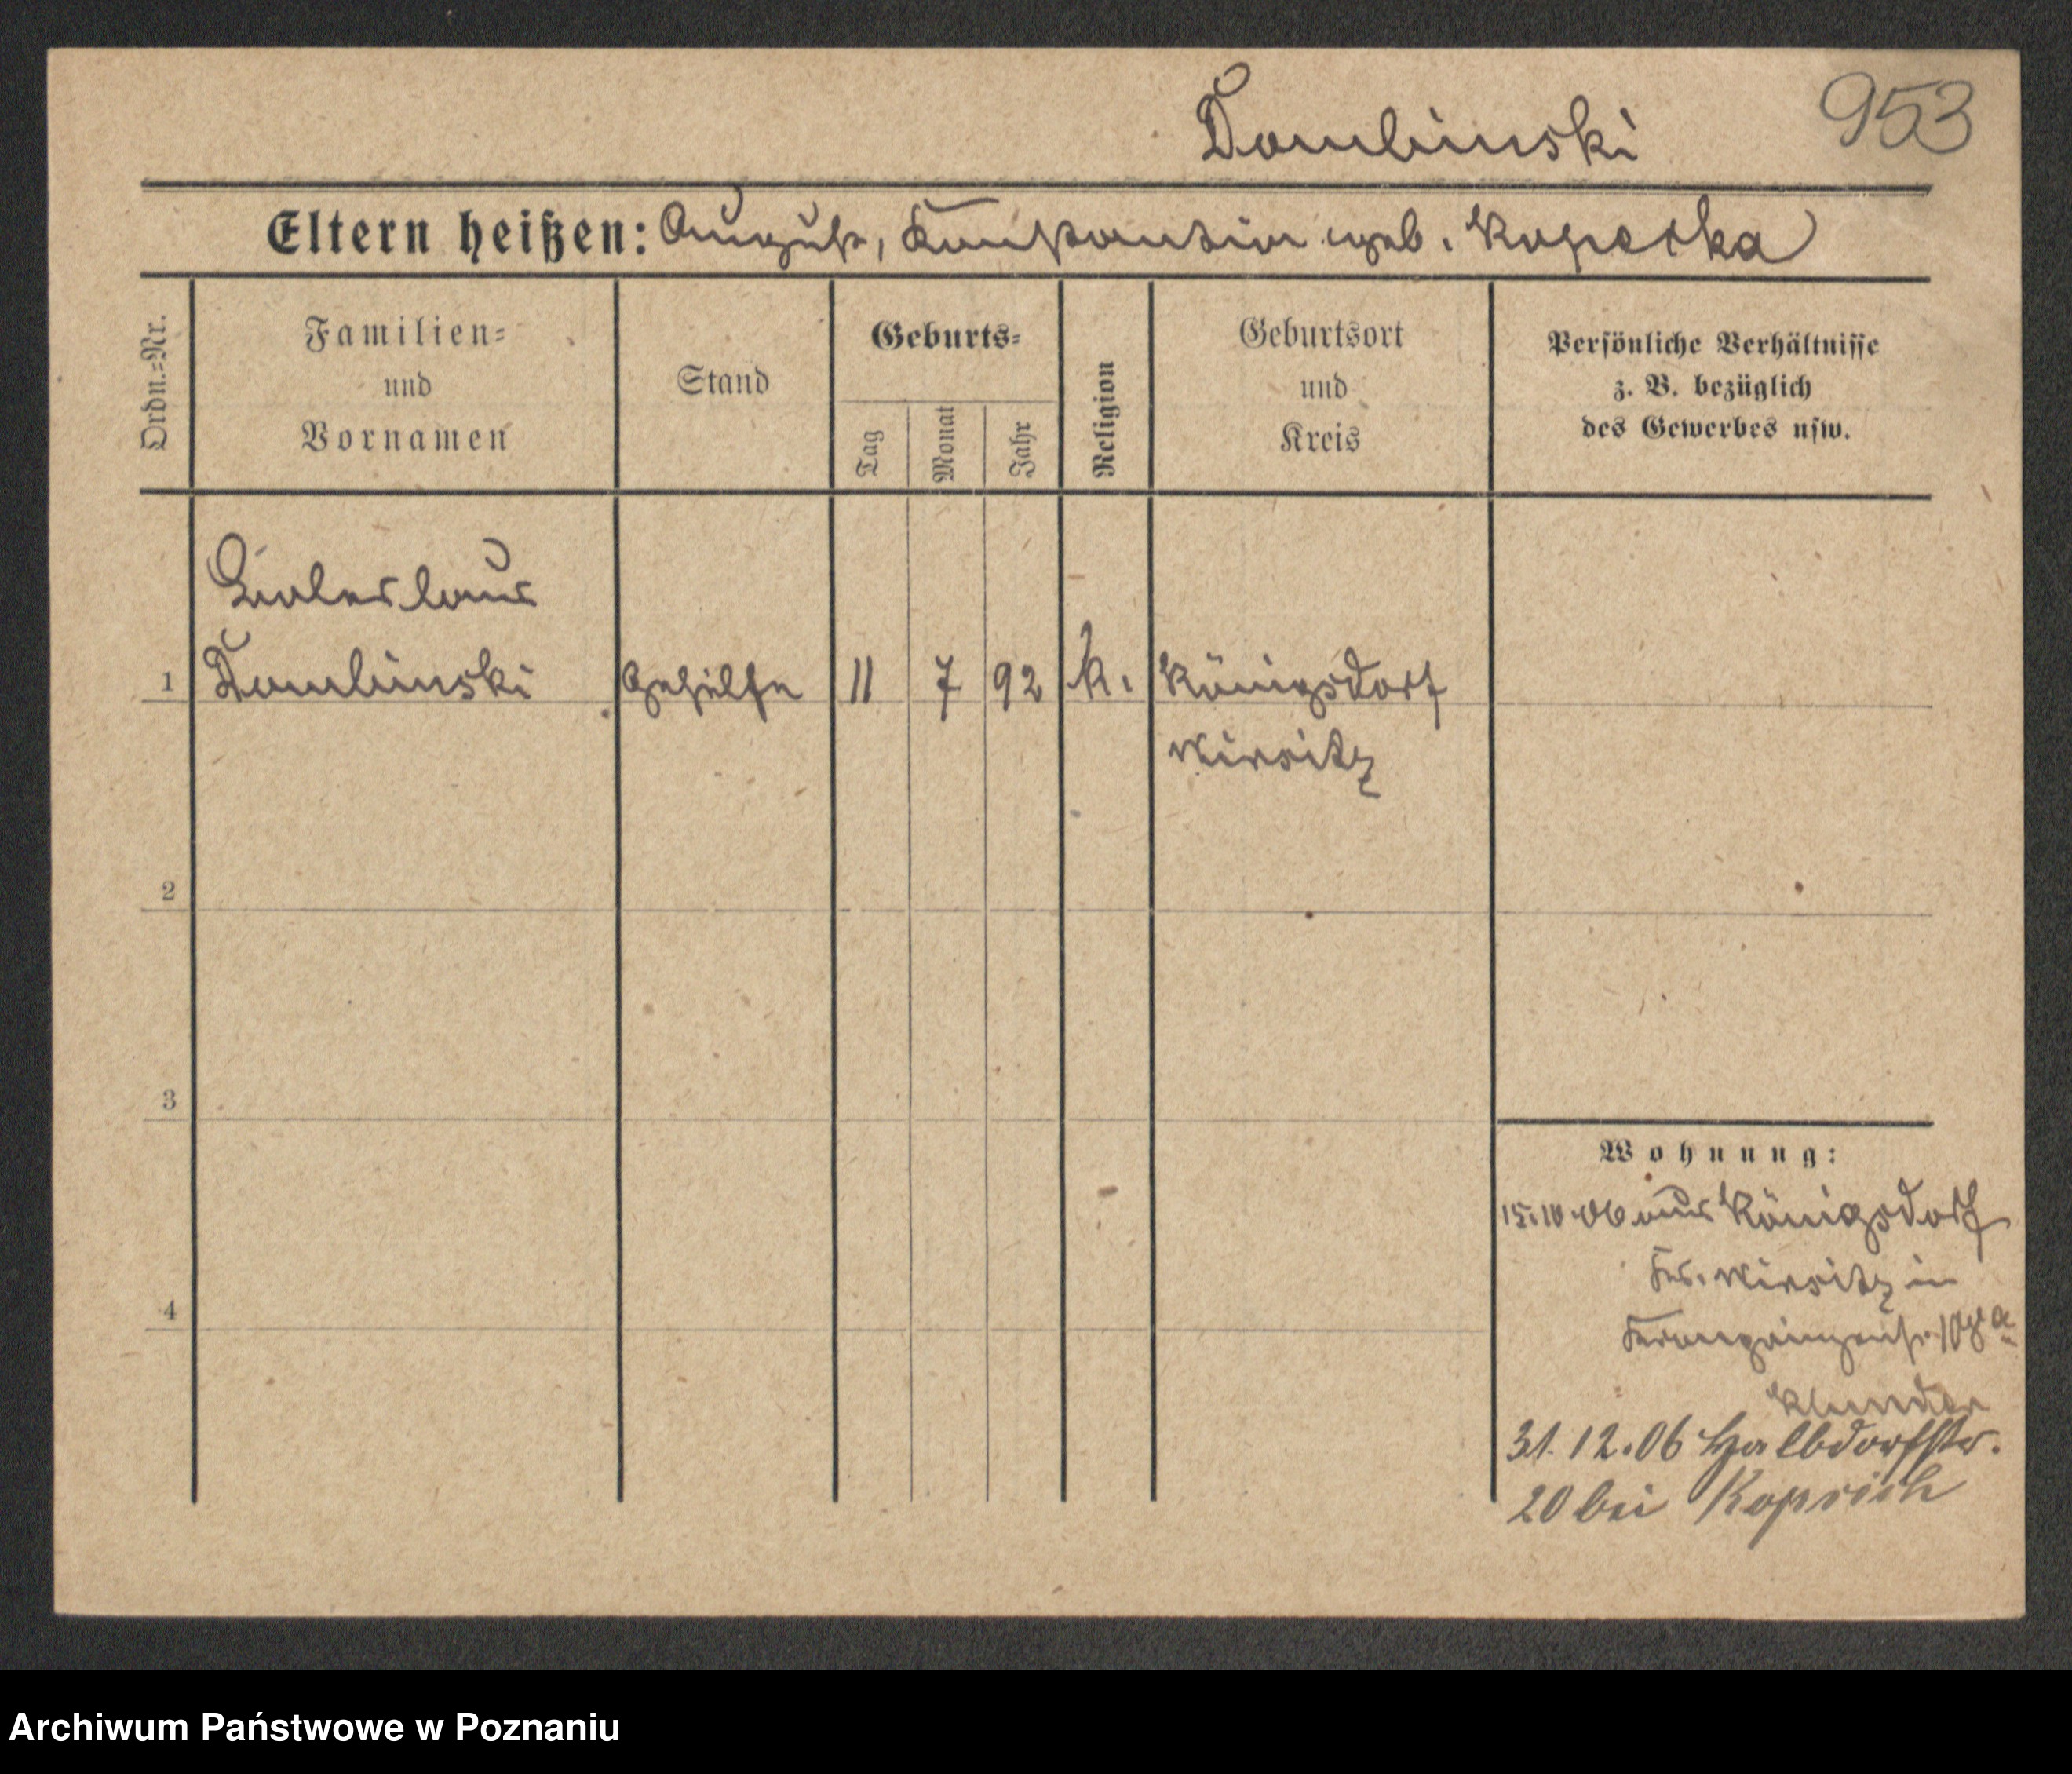 Dombinski
953
Eltern heißen: August, Konstantia geb. Kopecka
Ordn.=Nr.
Familien=
und
Vornamen
Stand
Geburts=
Tag
Monat
Jahr
Religion
Geburtsort
und
Kreis
Persönliche Verhältnisse
z. B. bezüglich
des Gewerbes usw.
1
Dombinski
Gehilfe
11
7
92
k.
Königsdorf
Wirsitz
2
3
4
Wohnung:
15.10.06 aus Königsdorf
Krs. Wirsitz in
Kronprinzenst.
31.12.06 Halbdorfstr.
20 bei
Archiwum Państwowe w Poznaniu